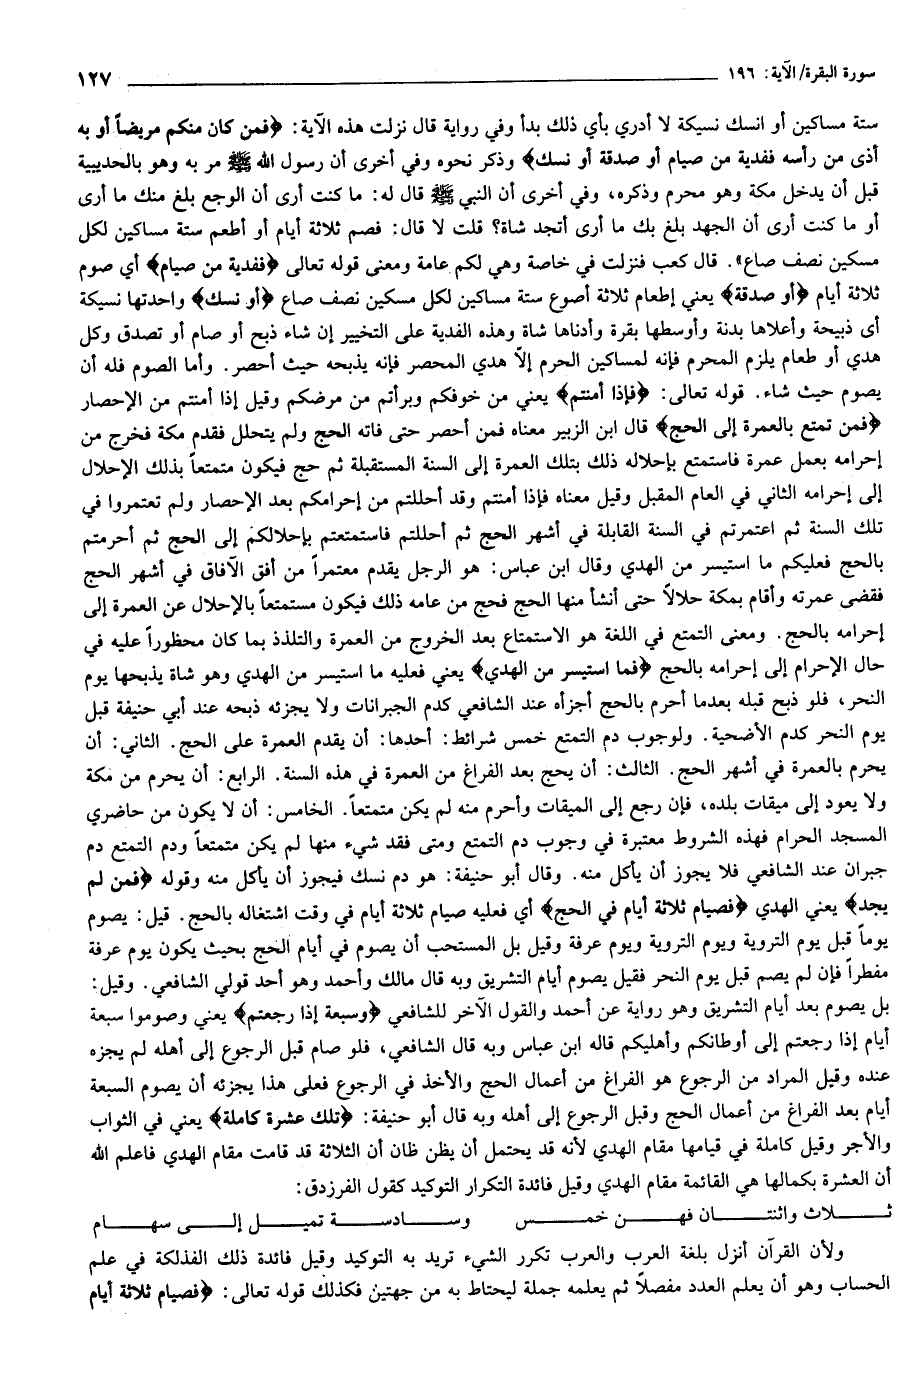 سورة البقرة/ الآية: ١٩٦ ١٢٧
ستة مساكين أو انسك نسيكة لا أدري بأي ذلك بدأ وفي رواية قال نزلت هذه الآية: ﴿فمن كان منكم مريضاً أو به
أذى من رأسه ففدية من صيام أو صدقة أو نسك﴾ وذكر نحوه وفي أخرى أن رسول الله ﷺ مر به وهو بالحديبية
قبل أن يدخل مكة وهو محرم وذكره، وفي أخرى أن النبي ﷺ قال له: ما كنت أرى أن الوجع بلغ منك ما أرى
أو ما كنت أرى أن الجهد بلغ بك ما أرى أتجد شاة؟ قلت لا قال: فصم ثلاثة أيام أو أطعم ستة مساكين لكل
مسكين نصف صاع». قال كعب فنزلت في خاصة وهي لكم عامة ومعنى قوله تعالى ﴿ففدية من صيام﴾ أي صوم
ثلاثة أيام ﴿أو صدقة﴾ يعني إطعام ثلاثة أصوع ستة مساكين لكل مسكين نصف صاع ﴿أو نسك﴾ واحدتها نسيكة
أى ذبيحة وأعلاها بدنة وأوسطها بقرة وأدناها شاة وهذه الفدية على التخيير إن شاء ذبح أو صام أو تصدق وكل
هدي أو طعام يلزم المحرم فإنه لمساكين الحرم إلاّ هدي المحصر فإنه يذبحه حيث أحصر. وأما الصوم فله أن
يصوم حيث شاء. قوله تعالى: ﴿فإذا أمنتم﴾ يعني من خوفكم وبرأتم من مرضكم وقيل إذا أمنتم من الإحصار
﴿فمن تمتع بالعمرة إلى الحج﴾ قال ابن الزبير معناه فمن أحصر حتى فاته الحج ولم يتحلل فقدم مكة فخرج من
إحرامه بعمل عمرة فاستمتع بإحلاله ذلك بتلك العمرة إلى السنة المستقبلة ثم حج فيكون متمتعاً بذلك الإحلال
إلى إحرامه الثاني في العام المقبل وقيل معناه فإذا أمنتم وقد أحللتم من إحرامكم بعد الإحصار ولم تعتمروا في
تلك السنة ثم اعتمرتم في السنة القابلة في أشهر الحج ثم أحللتم فاستمتعتم بإحلالكم إلى الحج ثم أحرمتم
بالحج فعليكم ما استيسر من الهدي وقال ابن عباس: هو الرجل يقدم معتمراً من أفق الآفاق في أشهر الحج
فقضى عمرته وأقام بمكة حلالاً حتى أنشأ منها الحج فحج من عامه ذلك فيكون مستمتعاً بالإحلال عن العمرة إلى
إحرامه بالحج. ومعنى التمتع في اللغة هو الاستمتاع بعد الخروج من العمرة والتلذذ بما كان محظوراً عليه في
حال الإحرام إلى إحرامه بالحج ﴿فما استيسر من الهدي﴾ يعني فعليه ما استيسر من الهدي وهو شاة يذبحها يوم
النحر، فلو ذبح قبله بعدما أحرم بالحج أجزأه عند الشافعي كدم الجبرانات ولا يجزئه ذبحه عند أبي حنيفة قبل
يوم النحر كدم الأضحية. ولوجوب دم التمتع خمس شرائط: أحدها: أن يقدم العمرة على الحج. الثاني: أن
يحرم بالعمرة في أشهر الحج. الثالث: أن يحج بعد الفراغ من العمرة في هذه السنة. الرابع: أن يحرم من مكة
ولا يعود إلى ميقات بلده، فإن رجع إلى الميقات وأحرم منه لم يكن متمتعاً. الخامس: أن لا يكون من حاضري
المسجد الحرام فهذه الشروط معتبرة في وجوب دم التمتع ومتى فقد شيء منها لم يكن متمتعاً ودم التمتع دم
جبران عند الشافعي فلا يجوز أن يأكل منه. وقال أبو حنيفة: هو دم نسك فيجوز أن يأكل منه وقوله ﴿فمن لم
يجد﴾ يعني الهدي ﴿فصيام ثلاثة أيام في الحج﴾ أي فعليه صيام ثلاثة أيام في وقت اشتغاله بالحج. قيل: يصوم
يوماً قبل يوم التروية ويوم التروية ويوم عرفة وقيل بل المستحب أن يصوم في أيام الحج بحيث يكون يوم عرفة
مفطراً فإن لم يصم قبل يوم النحر فقيل يصوم أيام التشريق وبه قال مالك وأحمد وهو أحد قولي الشافعي. وقيل:
بل يصوم بعد أيام التشريق وهو رواية عن أحمد والقول الآخر للشافعي ﴿وسبعة إذا رجعتم﴾ يعني وصوموا سبعة
أيام إذا رجعتم إلى أوطانكم وأهليكم قاله ابن عباس وبه قال الشافعي، فلو صام قبل الرجوع إلى أهله لم يجزه
عنده وقيل المراد من الرجوع هو الفراغ من أعمال الحج والأخذ في الرجوع فعلى هذا يجزئه أن يصوم السبعة
أيام بعد الفراغ من أعمال الحج وقبل الرجوع إلى أهله وبه قال أبو حنيفة: ﴿تلك عشرة كاملة﴾ يعني في الثواب
والأجر وقيل كاملة في قيامها مقام الهدي لأنه قد يحتمل أن يظن ظان أن الثلاثة قد قامت مقام الهدي فاعلم الله
أن العشرة بكمالها هي القائمة مقام الهدي وقيل فائدة التكرار التوكيد كقول الفرزدق:
ثـلاث واثنتـان فهـن خمـس وسـادسـة تميـل إلـى سهـام
ولأن القرآن أنزل بلغة العرب والعرب تكرر الشيء تريد به التوكيد وقيل فائدة ذلك الفذلكة في علم
الحساب وهو أن يعلم العدد مفصلاً ثم يعلمه جملة ليحتاط به من جهتين فكذلك قوله تعالى: ﴿فصيام ثلاثة أيام